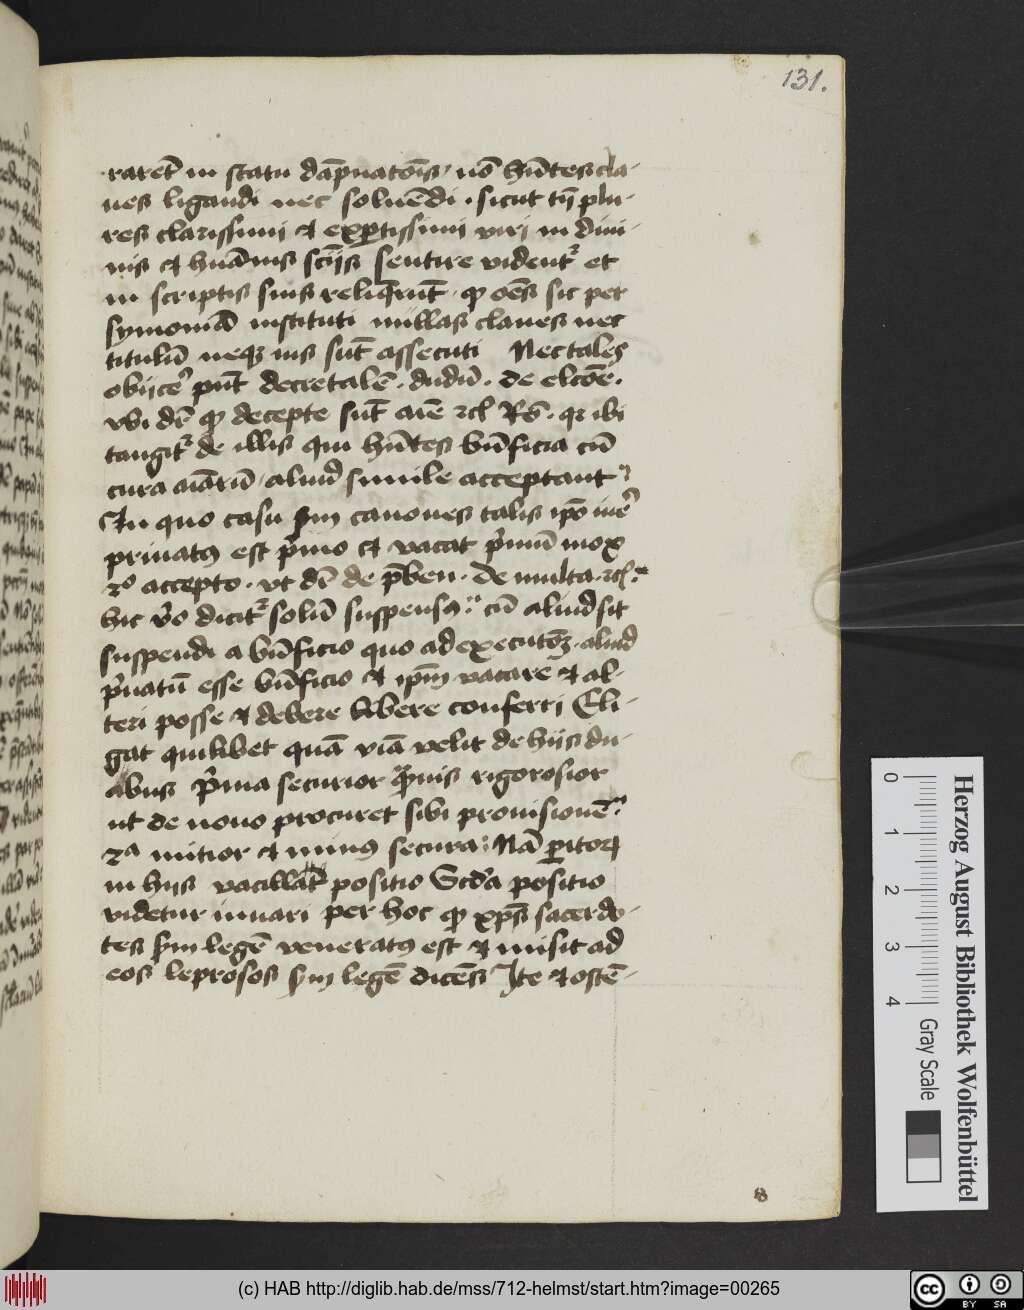 131.
rarēt in statu dāpnatōīs, nō hn̄tes cla-
ues ligandi nec soluēdi . sicut tn̄ plu-
res clarissimi et exp̲tissimi viri in diui-
nis et huānis scīīs sentire videntᷣ et
in scriptis suis reliqr̄unt . qꝫ oēs sic per
symoniā instituti nullas claues nec
titulū neqꝫ ius sūt assecuti Nec tales
obijcēʳ pn̄t decretalē . dudū . de elcōe .
vbi dr̄ qꝫ decepte sūt aīe ꝛcꝉ Rō . qꝛ ibi
tangitᷣ de illis qui hn̄tes bn̄ficia cū
cura aīarū aliud simile acceptant
In quo casu sm̄ canones talis ip̄o iuʳe
priuatꝰ est pʳmo et vacat pʳmū mox
2º accepto . vt dr̄ de p̄ben . de multa . ꝛcꝉ .
hic v̊o dicitᷣ solū suspensꝰ . cū aliud sit
suspendi a bn̄ficio quo ad executōꝫ . aliud
pʳuatū esse bn̄ficio et ip̄m vacare et al-
teri posse et debere libere conferri Eli-
gat quilibet quā viā velit de hijs du-
abus pʳma securior qᷓuis rigorosior
ut de nouo procuret sibi prouisionē .
2ª mitior et minꝰ secura Nā p̲itoꝝ
in hijs vacillat positio Scd̄a positio
videtur iuuari per hoc qꝫ xp̄s sacerdo-
tes sm̄ legē veneratꝰ est et misit ad
eos leprosos sm̄ legē dicēs Ite et ostē-
Herzog August Bibliothek Wolfenbüttel
0 1 2 3 4 Gray Scale
(c) HAB http://diglib.hab.de/mss/712-helmst/start.htm?image=00265
cc BY SA